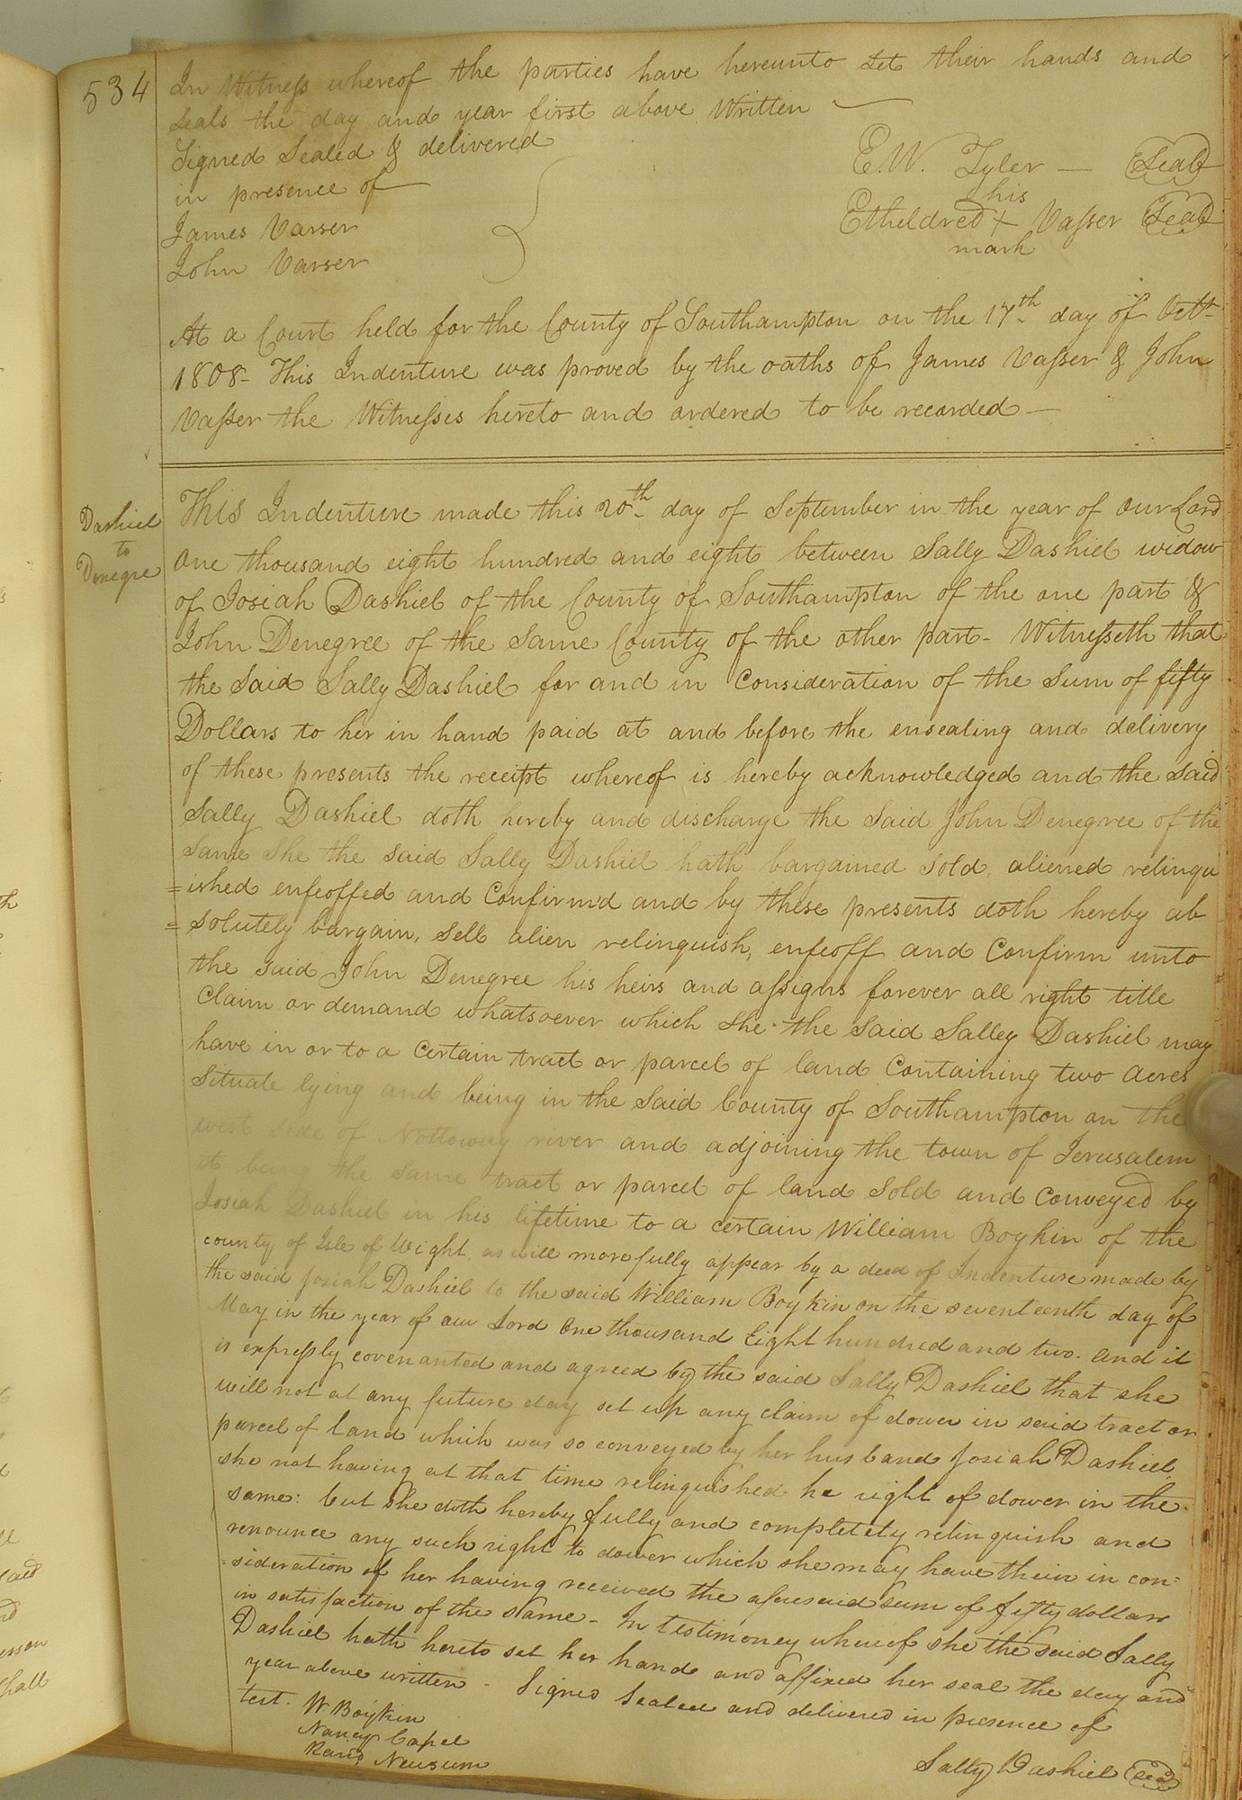 534
In Witness whereof the parties have hereunto set their hands and
seals the day and year first above Written
Signed Sealed & delivered
in presence of
James Vasser
John Vasser
E. W. Tyler — Seal
his
Etheldred + Vasser Seal
mark
At a Court held for the County of Southampton on the 17th day of Octr.
1808 - This Indenture was proved by the oaths of James Vasser & John
Vasser the Witnesses hereto and ordered to be recorded —
Dashiel
to
Denegre
This Indenture made this 20th day of September in the year of Our Lord
One thousand eight hundred and eight between Sally Dashiel widow
of Josiah Dashiel of the County of Southampton of the one part &
John Denegree of the same County of the other part - Witnesseth that
the said Sally Dashiel for and in Consideration of the Sum of fifty
Dollars to her in hand paid at and before the ensealing and delivery
of these presents the receipt whereof is hereby acknowledged and the said
Sally Dashiel doth hereby and discharge the said John Denegree of the
Same She the said Sally Dashiel hath bargained sold, aliened relinqu
=ished enfeoffed and Confirm'd and by these presents doth hereby ab
=solutely bargain, sell alien relinquish, enfeoff and Confirm unto
the said John Denegree his heirs and assigns forever all right title
Claim or demand whatsoever which she the said Salley Dashiel may
have in or to a Certain tract or parcel of land Containing two acres
Situate lying and being in the said County of Southampton on the
west side of Nottoway river and adjoining the town of Jerusalem
it being the same tract or parcel of land sold and Conveyed by
Josiah Dashiel in his lifetime to a certain William Boykin of the
county of Isle of Wight, as will more fully appear by a deed of Indenture made by
the said Josiah Dashiel to the said William Boykin on the seventeenth day of
May in the year of our Lord One thousand Eight hundred and two. and it
is expressly covenanted and agreed by the said Sally Dashiel that she
will not at any future day set up any claim of dower in said tract or
parcel of land which was so conveyed by her husband Josiah Dashiel
she not having at that time relinquished he right of dower in the
same: but she doth hereby fully and completely relinquish and
renounce any such right to dower which she may have their in con=
=sideration of her having received the aforesaid sum of fifty dollars
in satisfaction of the same - In testimoney whereof she the said Sally
Dashiel hath hereto set her hand and affixed her seal the day and
year above written - Signed Sealed and delivered in presence of
test. W. Boykin
Nancy Capel
Newsum
Sally Dashiel seal